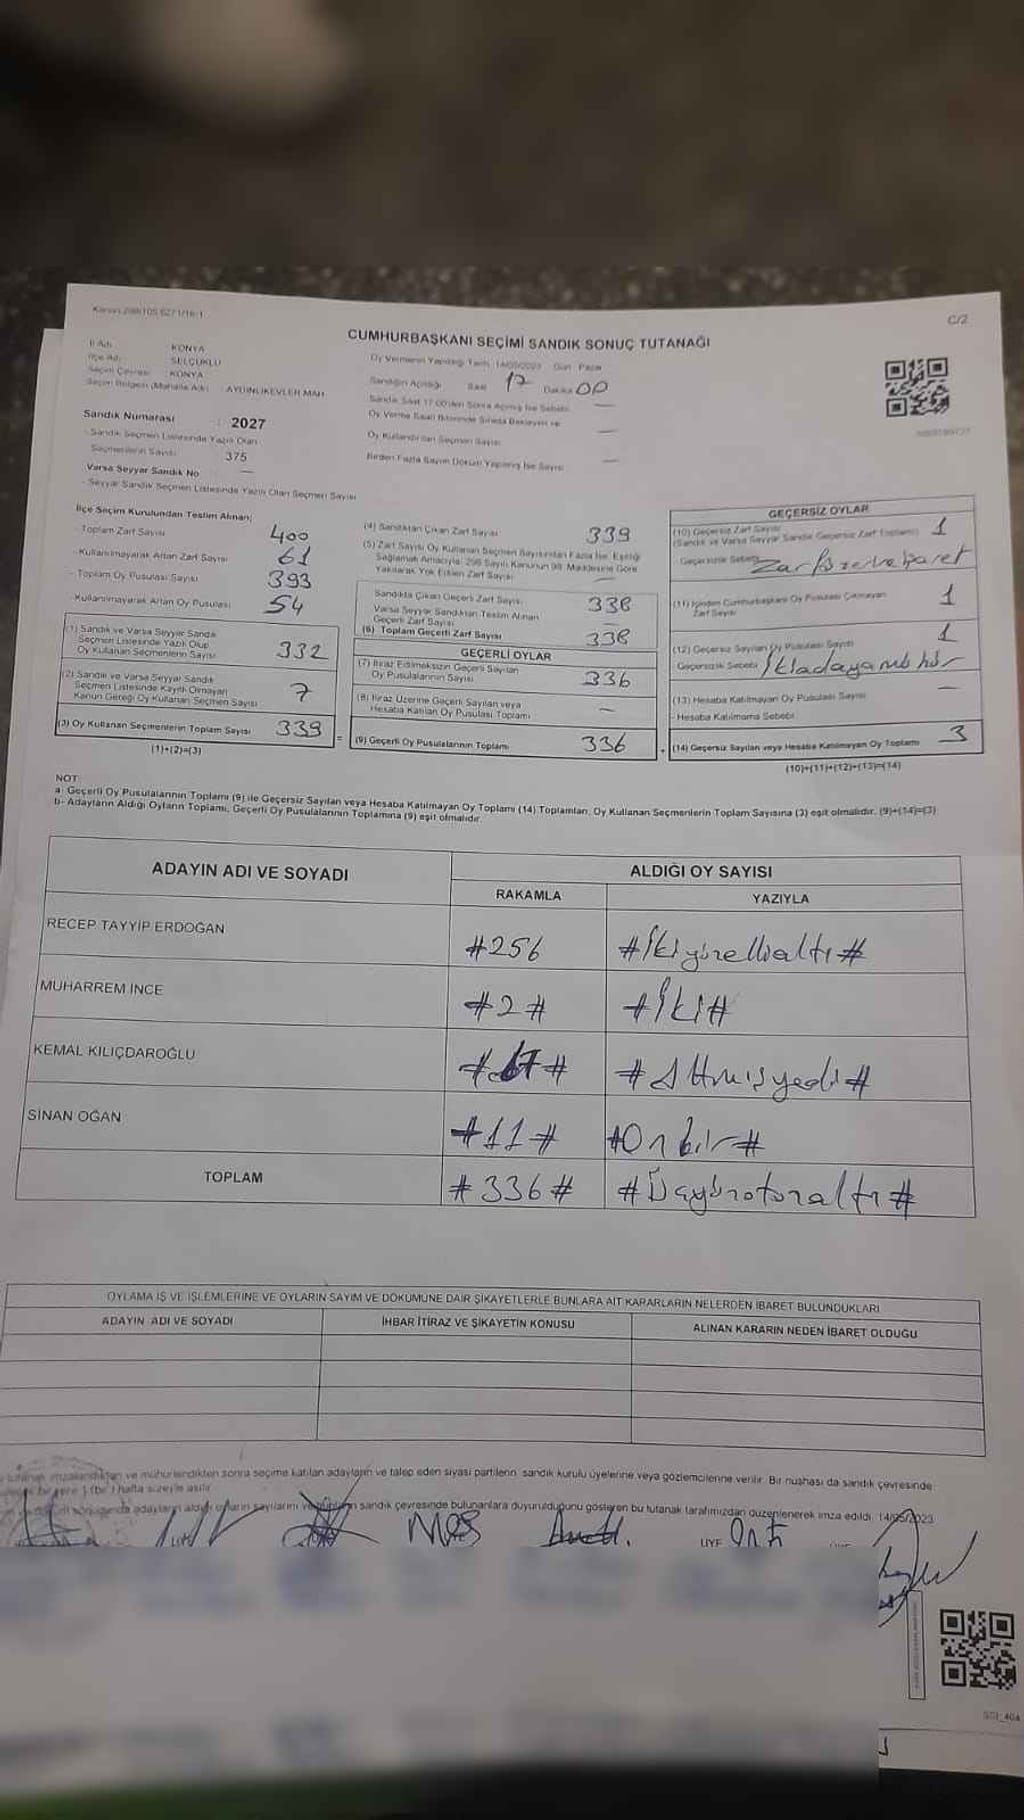 C/2
CUMHURBAŞKANI SEÇİMİ SANDIK SONUÇ TUTANAĞI
İl Adı : KONYA
İlçe Adı : SELÇUKLU
Seçim Çevresi : KONYA
Seçim Bölgesi (Mahalle Adı) : AYDINLIKEVLER MAH
Oy Vermenin Yapıldığı Tarih : 14/05/2023 Gün : Pazar
Sandığın Açıldığı Saat 17 Dakika 00
Sandık Saat 17:00'den Sonra Açılmış İse Sebebi —
Oy Kullandırılan Seçmen Sayısı —
Birden Fazla Sayım Döküm Yapılmış İse Sayısı —
Sandık Numarası : 2027
- Sandık Seçmen Listesinde Yazılı Olan
Seçmenlerin Sayısı : 375
Varsa Seyyar Sandık No —
- Seyyar Sandık Seçmen Listesinde Yazılı Olan Seçmen Sayısı
İlçe Seçim Kurulundan Teslim Alınan;
- Toplam Zarf Sayısı 400
- Kullanılmayarak Artan Zarf Sayısı 61
- Toplam Oy Pusulası Sayısı 393
- Kullanılmayarak Artan Oy Pusulası 54
(1) Sandık ve Varsa Seyyar Sandık
Seçmen Listesinde Yazılı Olup
Oy Kullanan Seçmenlerin Sayısı 332
(2) Sandık ve Varsa Seyyar Sandık
Seçmen Listesinde Kayıtlı Olmayan
Kanun Gereği Oy Kullanan Seçmen Sayısı 7
(3) Oy Kullanan Seçmenlerin Toplam Sayısı 339
(1)+(2)=(3)
(4) Sandıktan Çıkan Zarf Sayısı 339
(5) Zarf Sayısı Oy Kullanan Seçmen Sayısından Fazla İse, Eşitliği
Sağlamak Amacıyla, 298 Sayılı Kanunun 98. Maddesine Göre
Yakılarak Yok Edilen Zarf Sayısı —
Sandıkta Çıkan Geçerli Zarf Sayısı 338
Varsa Seyyar Sandıktan Teslim Alınan
Geçerli Zarf Sayısı —
(6) Toplam Geçerli Zarf Sayısı 338
GEÇERLİ OYLAR
(7) İtiraz Edilmeksizin Geçerli Sayılan
Oy Pusulalarının Sayısı 336
(8) İtiraz Üzerine Geçerli Sayılan veya
Hesaba Katılan Oy Pusulası Toplamı —
= (9) Geçerli Oy Pusulalarının Toplamı 336
GEÇERSİZ OYLAR
(10) Geçersiz Zarf Sayısı 1
(Sandık ve Varsa Seyyar Sandık Geçersiz Zarf Toplamı)
Geçersizlik Sebebi
(11) İçinden Cumhurbaşkanı Oy Pusulası Çıkmayan
Zarf Sayısı 1
(12) Geçersiz Sayılan Oy Pusulası Sayısı 1
Geçersizlik Sebebi İki adaya mühür
(13) Hesaba Katılmayan Oy Pusulası Sayısı —
- Hesaba Katılmama Sebebi
+ (14) Geçersiz Sayılan veya Hesaba Katılmayan Oy Toplamı 3
(10)+(11)+(12)+(13)=(14)
NOT:
a- Geçerli Oy Pusulalarının Toplamı (9) ile Geçersiz Sayılan veya Hesaba Katılmayan Oy Toplamı (14) Toplamları, Oy Kullanan Seçmenlerin Toplam Sayısına (3) eşit olmalıdır. (9)+(14)=(3)
b- Adayların Aldığı Oyların Toplamı, Geçerli Oy Pusulalarının Toplamına (9) eşit olmalıdır.
ADAYIN ADI VE SOYADI
ALDIĞI OY SAYISI
RAKAMLA YAZIYLA
RECEP TAYYİP ERDOĞAN #256 #İkiyüzelliıaltı#
MUHARREM İNCE #2# #İki#
KEMAL KILIÇDAROĞLU #67# #Altmışyedi#
SİNAN OĞAN #11# #Onbir#
TOPLAM #336# #Üçyüzotuzaltı#
OYLAMA İŞ VE İŞLEMLERİNE VE OYLARIN SAYIM VE DÖKÜMÜNE DAİR ŞİKAYETLERLE BUNLARA AİT KARARLARIN NELERDEN İBARET BULUNDUKLARI
ADAYIN ADI VE SOYADI İHBAR İTİRAZ VE ŞİKAYETİN KONUSU ALINAN KARARIN NEDEN İBARET OLDUĞU
tutanak imzalandıktan ve mühürlendikten sonra seçime katılan adayların ve talep eden siyasi partilerin, sandık kurulu üyelerine veya gözlemcilerine verilir. Bir nüshası da sandık çevresinde
1 (bir) hafta süreyle asılır.
adayların aldığı oyların sayılarını sandık çevresinde bulunanlara duyurulduğunu gösteren bu tutanak tarafımızdan düzenlenerek imza edildi. 14/05/2023
ÜYE